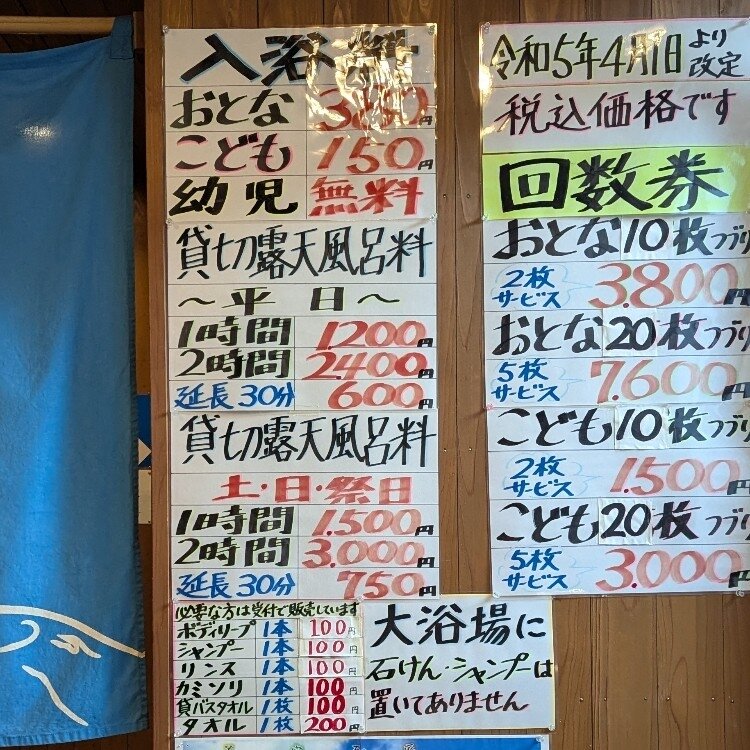 入浴料
おとな 380円
こども 150円
幼児 無料
貸切露天風呂料
～平日～
1時間 1.200円
2時間 2.400円
延長30分 600円
貸切露天風呂料
土・日・祭日
1時間 1.500円
2時間 3.000円
延長30分 750円
必要な方は受付で販売しています
ボディソープ 1本 100円
シャンプー 1本 100円
リンス 1本 100円
カミソリ 1本 100円
貸バスタオル 1枚 100円
タオル 1枚 200円
大浴場に
石けん・シャンプーは
置いてありません
令和5年4月1日より改定
税込価格です
回数券
おとな10枚つづり
2枚サービス 3.800円
おとな20枚つづり
5枚サービス 7.600円
こども10枚つづり
2枚サービス 1.500円
こども20枚つづり
5枚サービス 3.000円